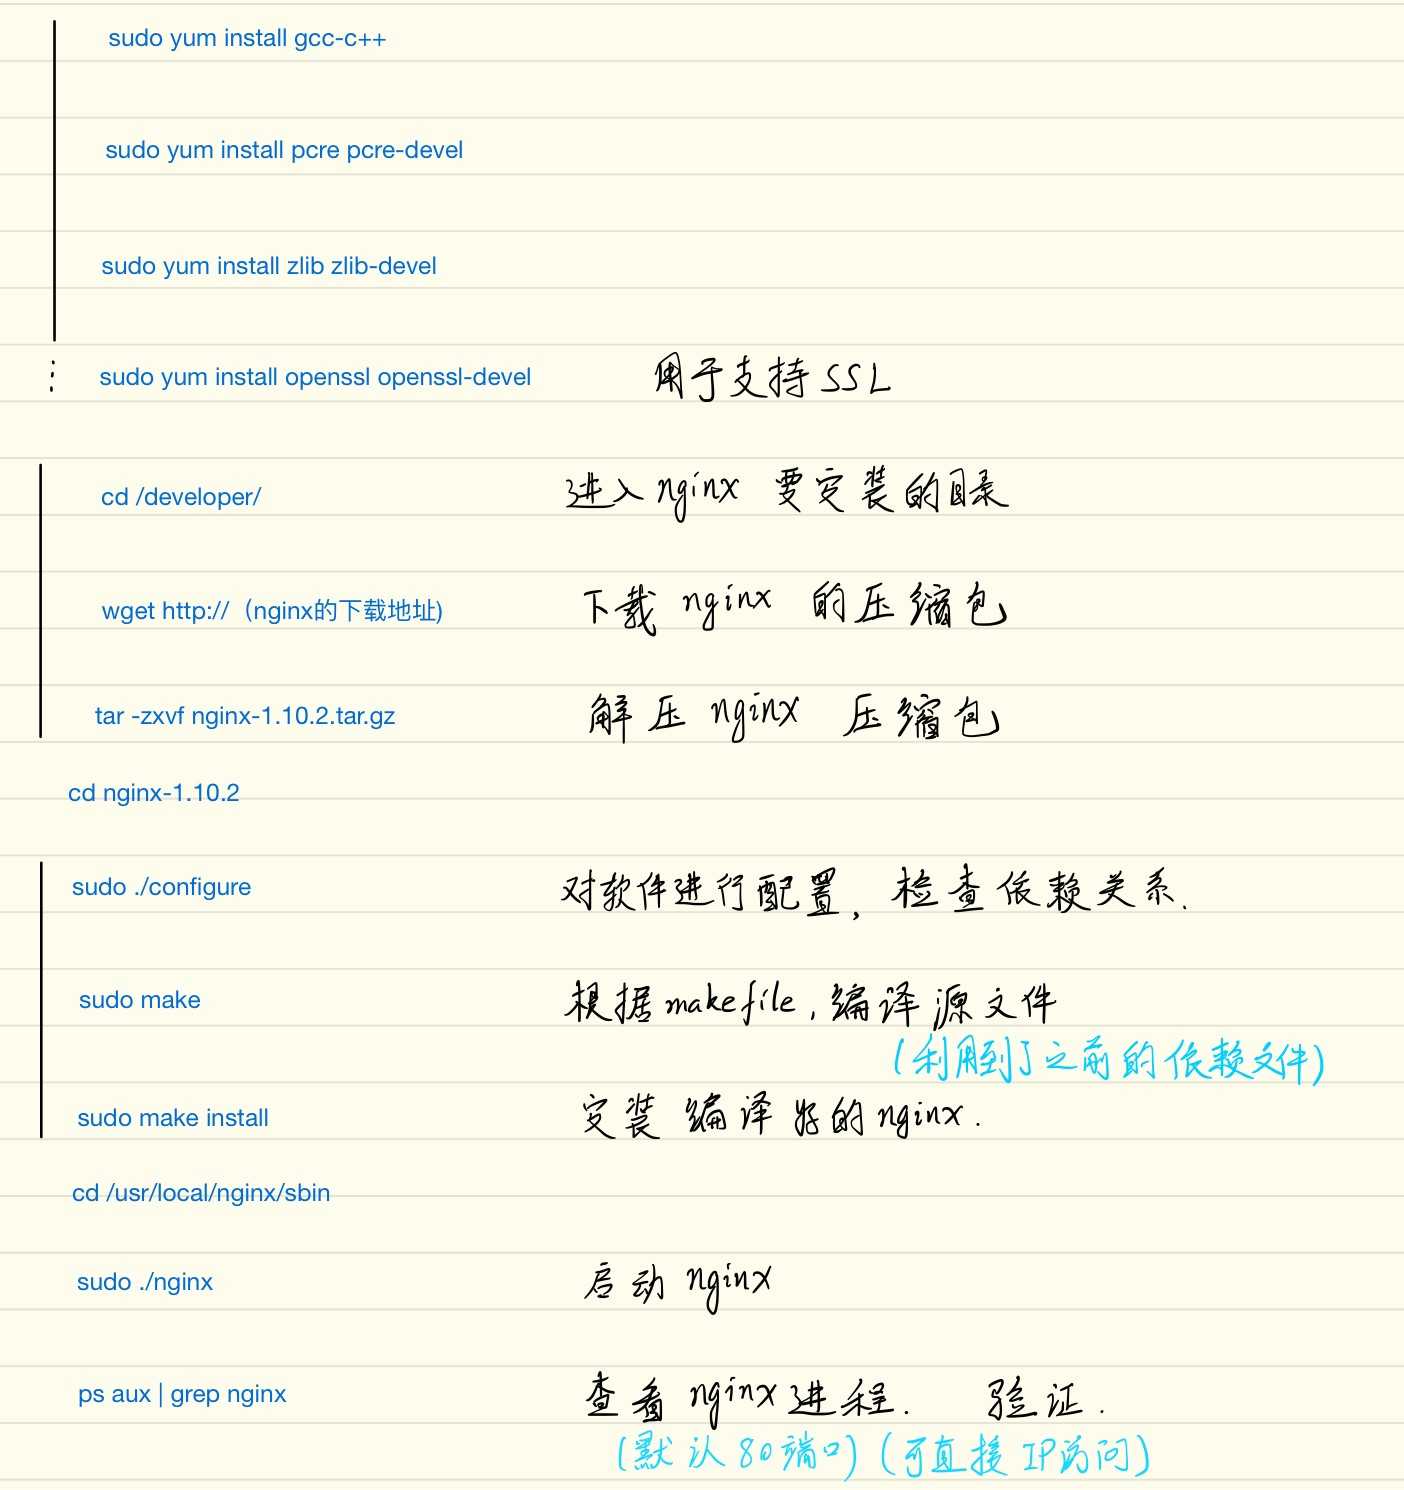 sudo yum install gcc-c++
sudo yum install pcre pcre-devel
sudo yum install zlib zlib-devel
sudo yum install openssl openssl-devel 用于支持SSL
cd /developer/ 进入nginx 要安装的目录
wget http://（nginx的下载地址) 下载 nginx 的压缩包
tar -zxvf nginx-1.10.2.tar.gz 解压 nginx 压缩包
cd nginx-1.10.2
sudo ./configure 对软件进行配置, 检查依赖关系.
sudo make 根据makefile, 编译源文件
(利用到了之前的依赖文件)
sudo make install 安装编译好的nginx.
cd /usr/local/nginx/sbin
sudo ./nginx 启动 nginx
ps aux | grep nginx 查看nginx进程. 验证.
(默认80端口) (可直接IP访问)